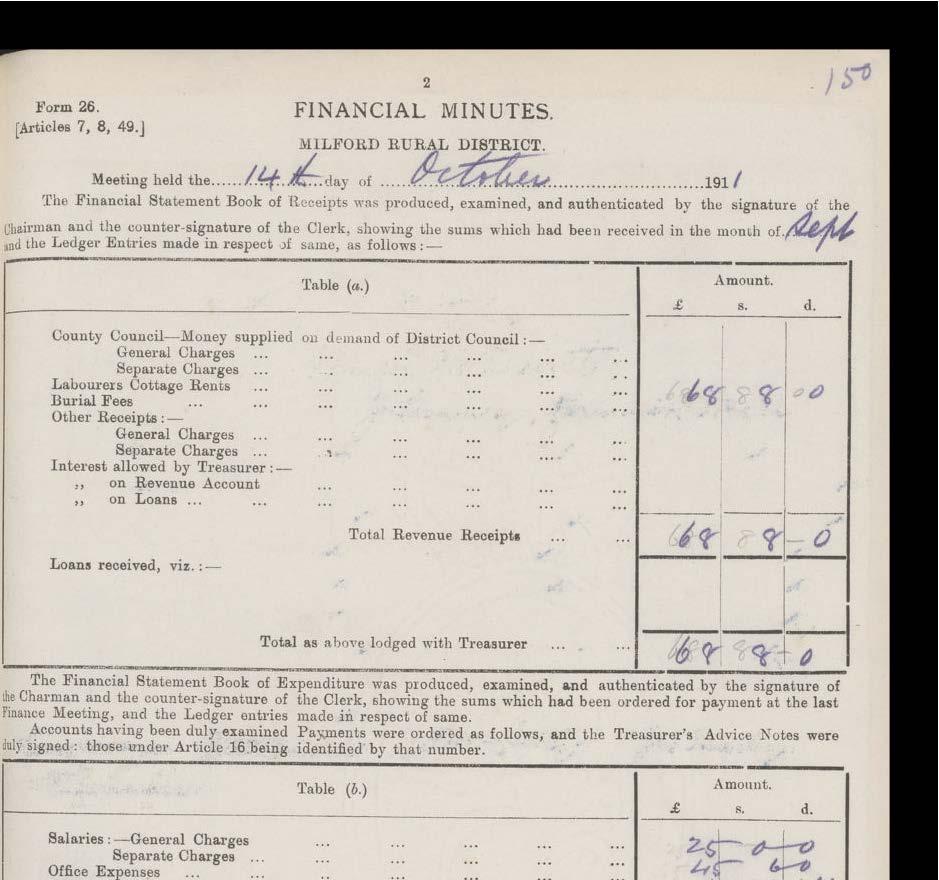 150
2
Form 26.
[Articles 7, 8, 49.]
FINANCIAL MINUTES.
MILFORD RURAL DISTRICT.
Meeting held the......14th...day of ....October..............................1911
The Financial Statement Book of Receipts was produced, examined, and authenticated by the signature of the
Chairman and the counter-signature of the Clerk, showing the sums which had been received in the month of Sept
and the Ledger Entries made in respect of same, as follows:—
Table (a.) Amount.
£ s. d.
County Council—Money supplied on demand of District Council:—
General Charges ... ... ... ... ... ...
Separate Charges ... ... ... ... ... ...
Labourers Cottage Rents ... ... ... ... ... ... 68 8 0
Burial Fees ... ... ... ... ... ... ...
Other Receipts:—
General Charges ... ... ... ... ... ...
Separate Charges ... ... ... ... ... ...
Interest allowed by Treasurer:—
,, on Revenue Account ... ... ... ... ...
,, on Loans ... ... ... ... ... ... ...
Total Revenue Receipts ... ... 68 8 – 0
Loans received, viz.:—
Total as above lodged with Treasurer ... ... 68 8 – 0
The Financial Statement Book of Expenditure was produced, examined, and authenticated by the signature of
the Charman and the counter-signature of the Clerk, showing the sums which had been ordered for payment at the last
Finance Meeting, and the Ledger entries made in respect of same.
Accounts having been duly examined Payments were ordered as follows, and the Treasurer's Advice Notes were
duly signed: those under Article 16 being identified by that number.
Table (b.) Amount.
£ s. d.
Salaries:—General Charges ... ... ... ... ... 25 0 0
Separate Charges ... ... ... ... ... ... 45 6 0
Office Expenses ... ... ... ... ... ... ...